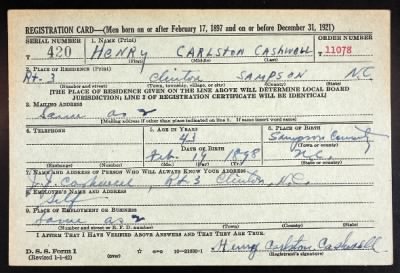 REGISTRATION CARD—(Men born on or after February 17, 1897 and on or before December 31, 1921)
SERIAL NUMBER 1. NAME (Print) ORDER NUMBER
420 HENRY CARLSTON CASHWELL T 11078
(First) (Middle) (Last)
2. PLACE OF RESIDENCE (Print)
Rt. 3 Clinton SAMPSON N.C.
(Number and street) (Town, township, village, or city) (County) (State)
[THE PLACE OF RESIDENCE GIVEN ON THE LINE ABOVE WILL DETERMINE LOCAL BOARD
JURISDICTION; LINE 2 OF REGISTRATION CERTIFICATE WILL BE IDENTICAL]
3. MAILING ADDRESS
Same as 2
[Mailing address if other than place indicated on line 2. If same insert word same]
4. TELEPHONE 5. AGE IN YEARS 6. PLACE OF BIRTH
43 Sampson County
DATE OF BIRTH (Town or county)
Feb. 1898 N.C.
(Exchange) (Number) (Mo.) (Day) (Yr.) (State or country)
7. NAME AND ADDRESS OF PERSON WHO WILL ALWAYS KNOW YOUR ADDRESS
Cashwell, Rt 3 Clinton, N.C.
8. EMPLOYER'S NAME AND ADDRESS
Self
9. PLACE OF EMPLOYMENT OR BUSINESS
Same as 2
(Number and street or R. F. D. number) (Town) (County) (State)
I AFFIRM THAT I HAVE VERIFIED ABOVE ANSWERS AND THAT THEY ARE TRUE.
D. S. S. Form 1
(Revised 1-1-42) (over) Henry Carlston Cashwell
(Registrant's signature)